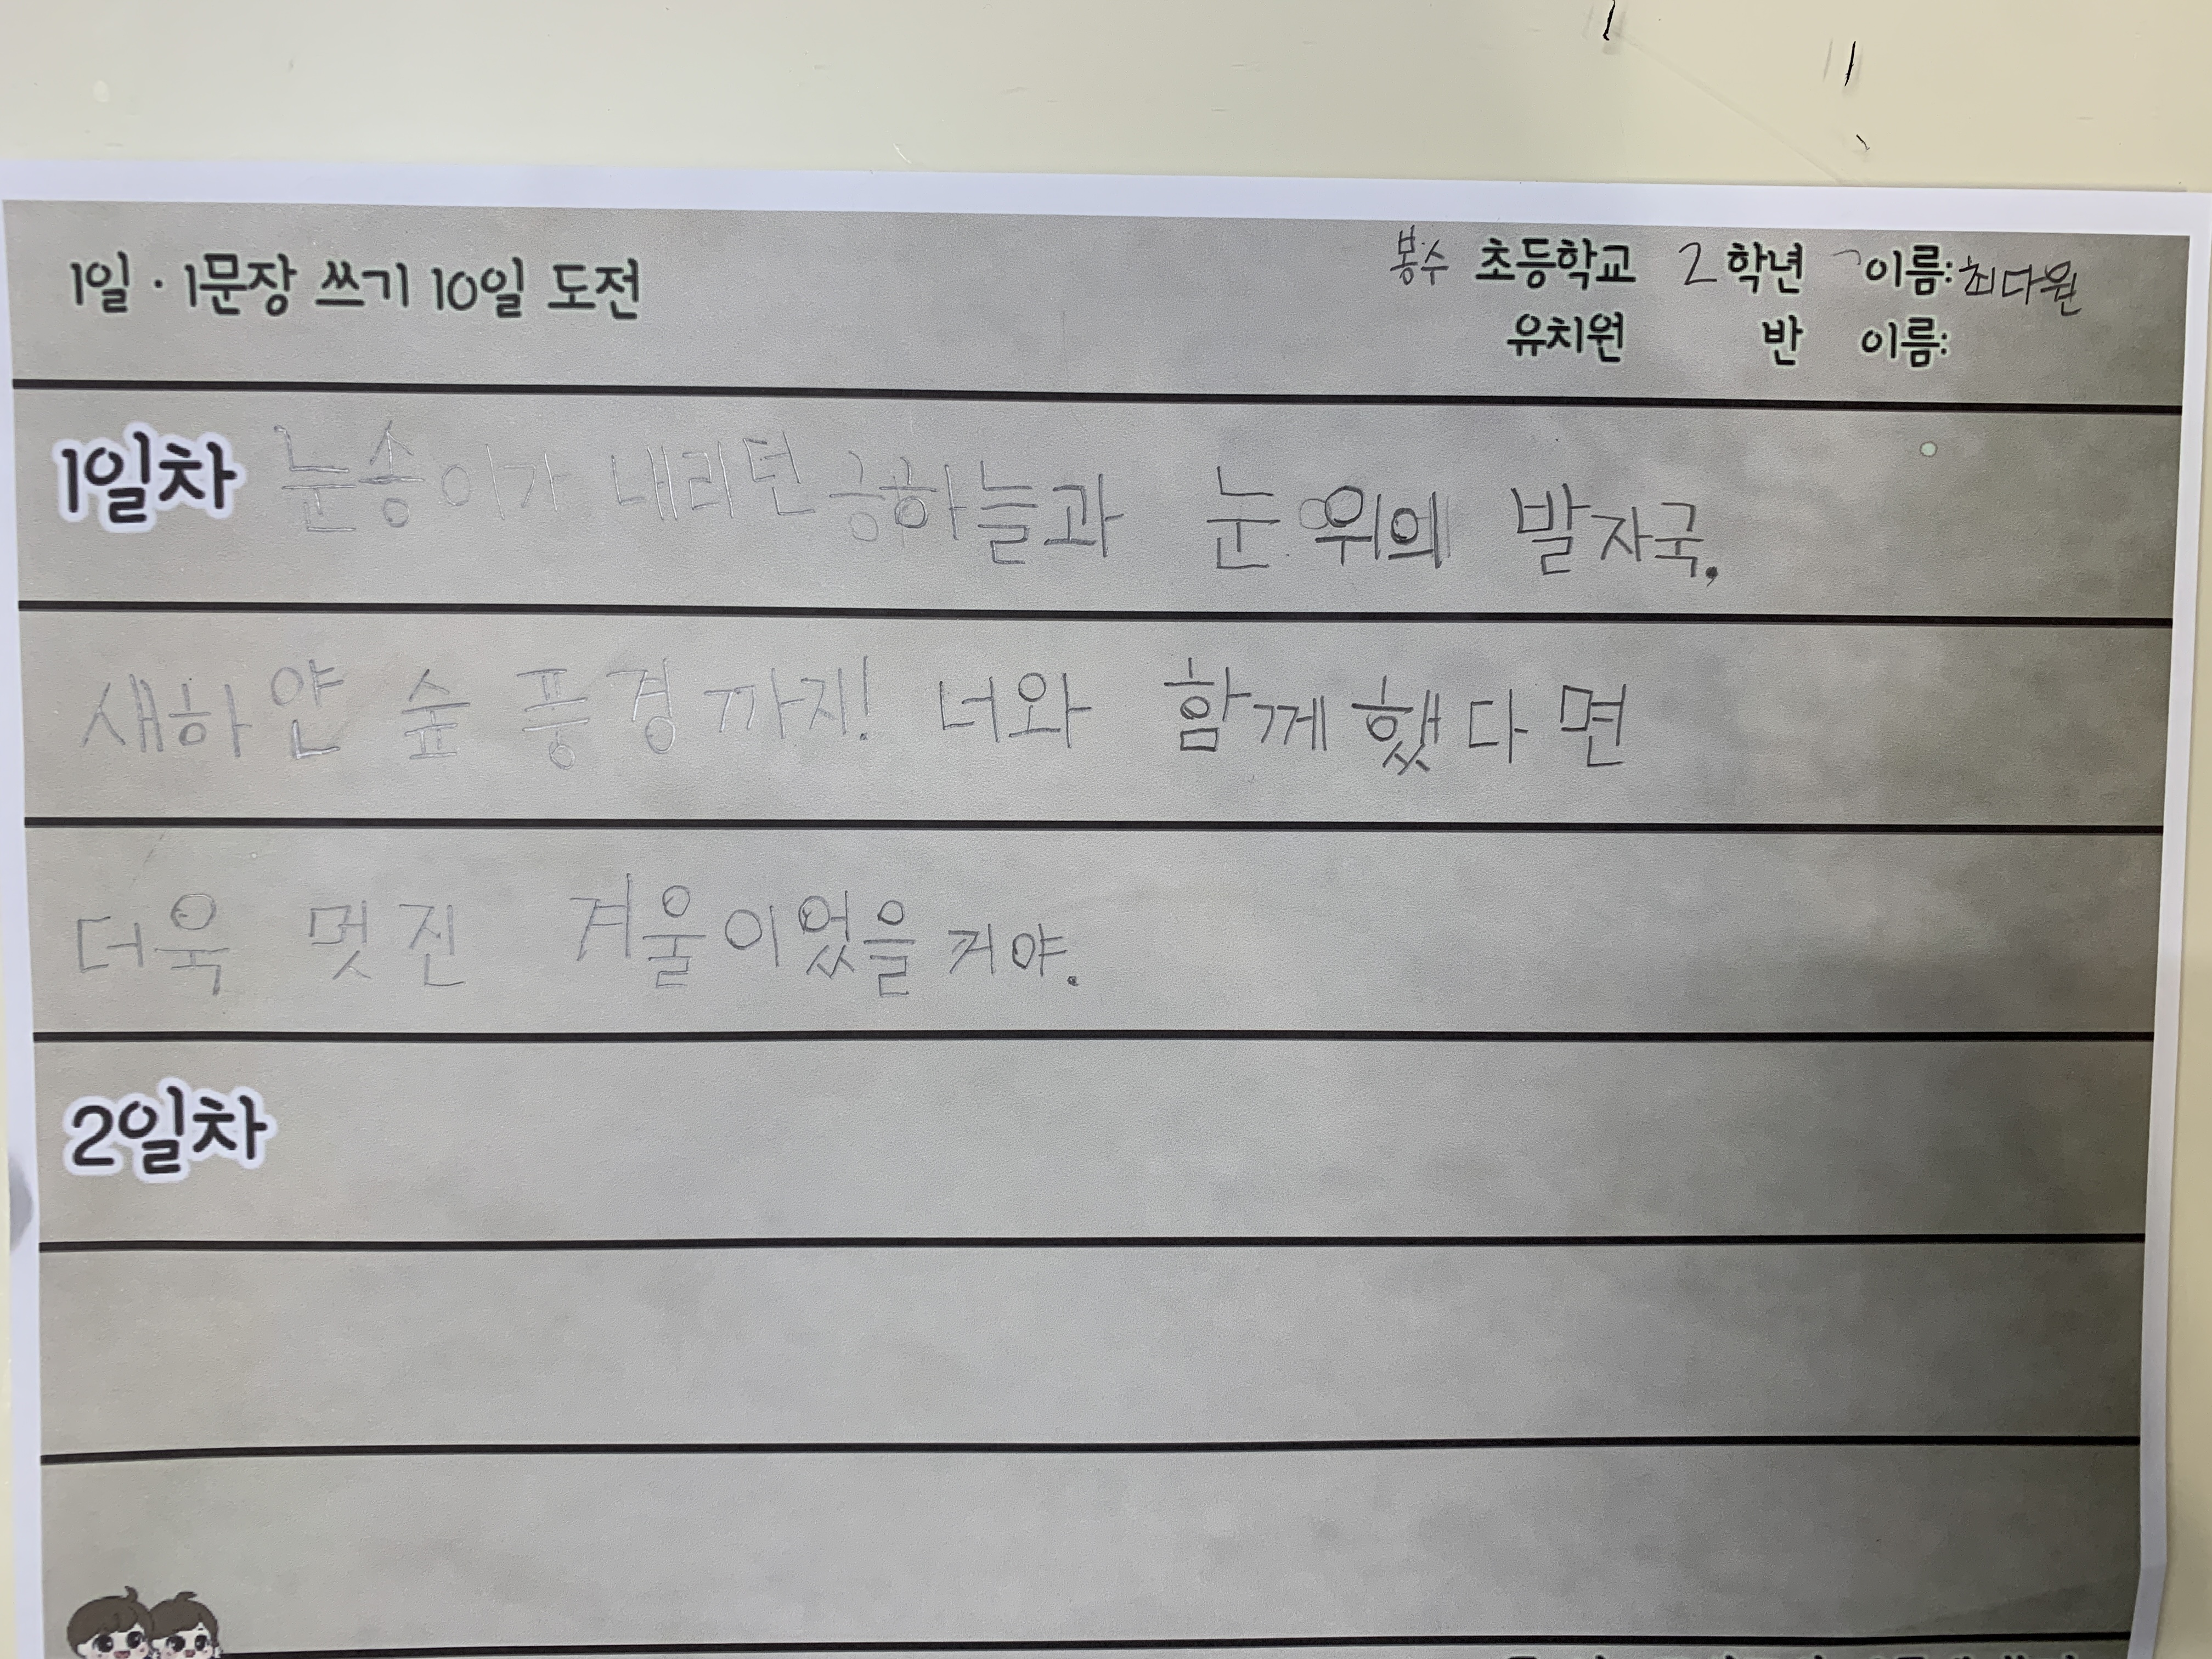 1일 · 1문장 쓰기 10일 도전
봉수 초등학교 2 학년 이름: 최다원
유치원 반 이름:
1일차 눈송이가 내리던 하늘과 눈 위의 발자국,
새하얀 숲 풍경까지! 너와 함께했다면
더욱 멋진 겨울이었을 거야.
2일차